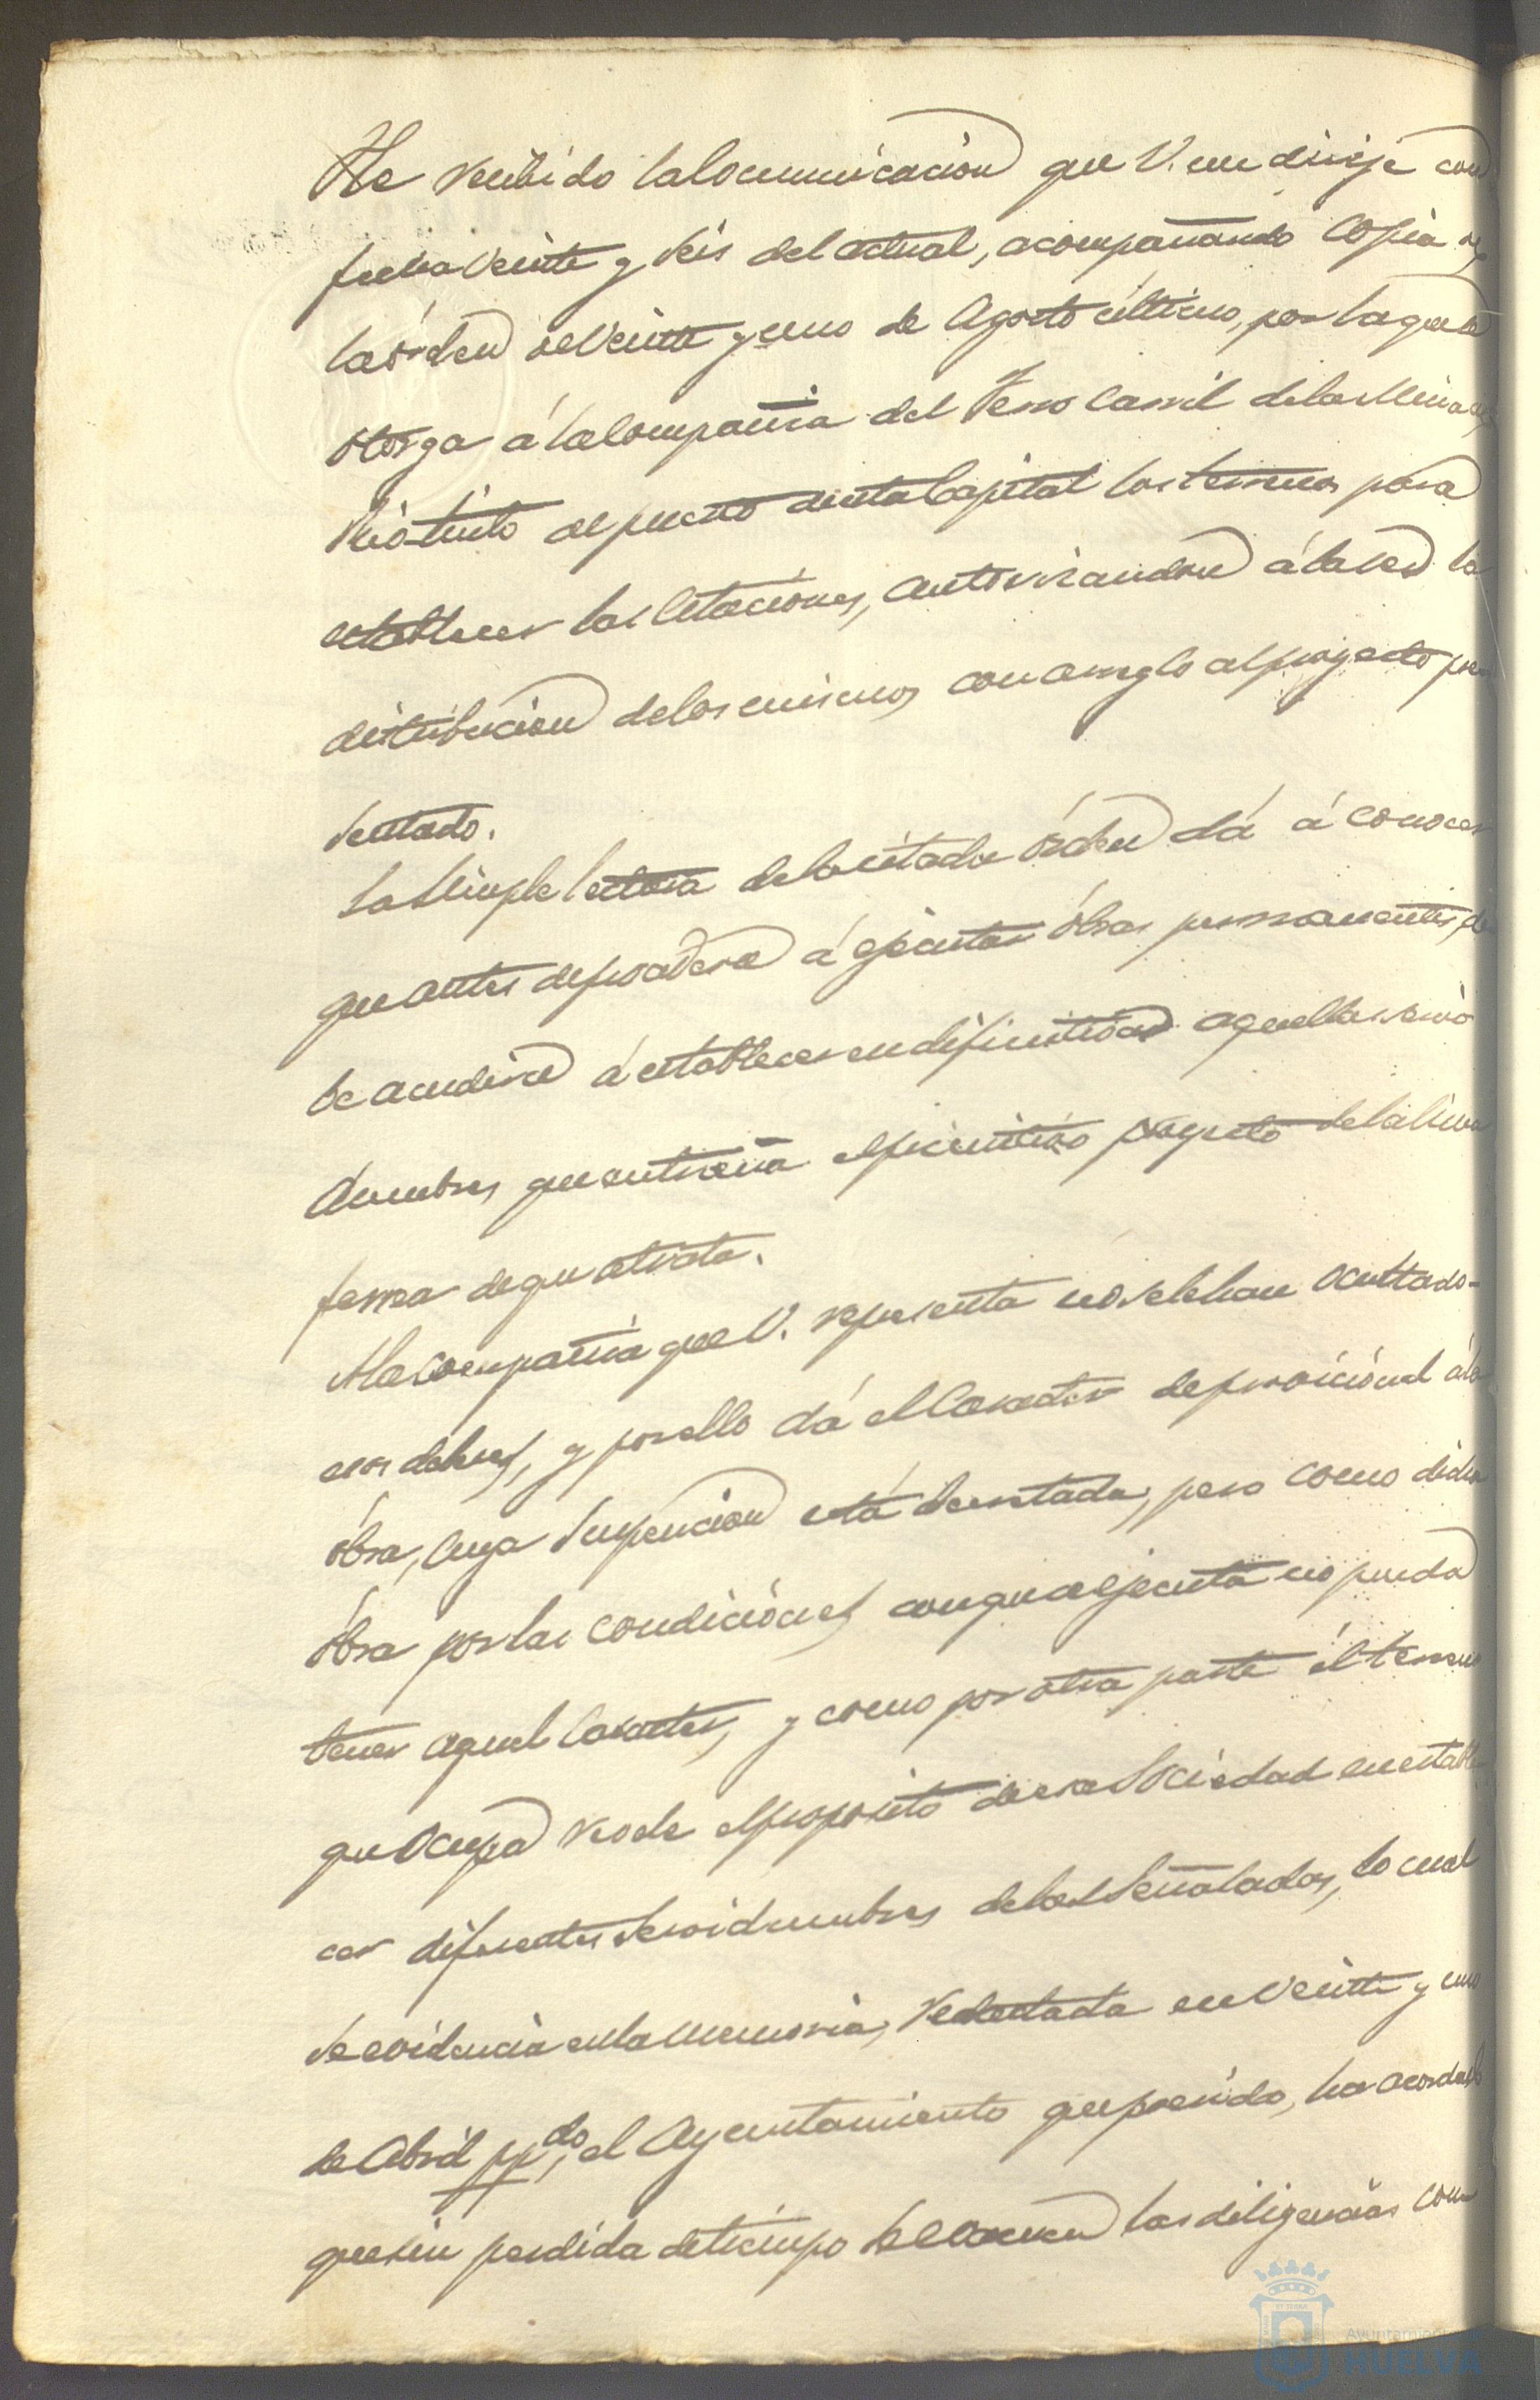 He recibido la Comunicacion que V. me dirije con
fecha veinte y seis del actual, acompañando copia de
la órden de veinte y uno de Agosto último, por la que se
otorga á la Compañia del Ferro Carril de las Minas de
Rio-tinto al puerto de esta Capital los terrenos para
establecer las Estaciones, autorizandose á la vez la
distribucion de los mismos, con arreglo al proyecto pre
sentado.
La simple lectura de la citada órden dá á conocer
que antes de proceder á ejecutar óbras permanentes, de
be acudirse á establecer en difinitiva aquellas servi
dumbres que entraña el primitivo proyecto de la linea
ferrea de que se trata.
A la Compañia que V. representa no se le han ocultado
esos deberes, y por ello dá el Caracter de provicional á la
óbra, cuya suspencion está decretada, pero como dicha
óbra por las condiciones con que se ejecuta no puede
tener aquel Caracter, y como por otra parte el terreno
que ocupa es de el proposito de esa Sociedad en estable
cer diferentes servidumbres de las señaladas, lo cual
se evidencia en la memoria, redactada en veinte y uno
de Abril ppdo, el Ayuntamiento que presido, ha acordado
que sin perdida de tiempo se las diligencias com
Ayuntamiento
HUELVA